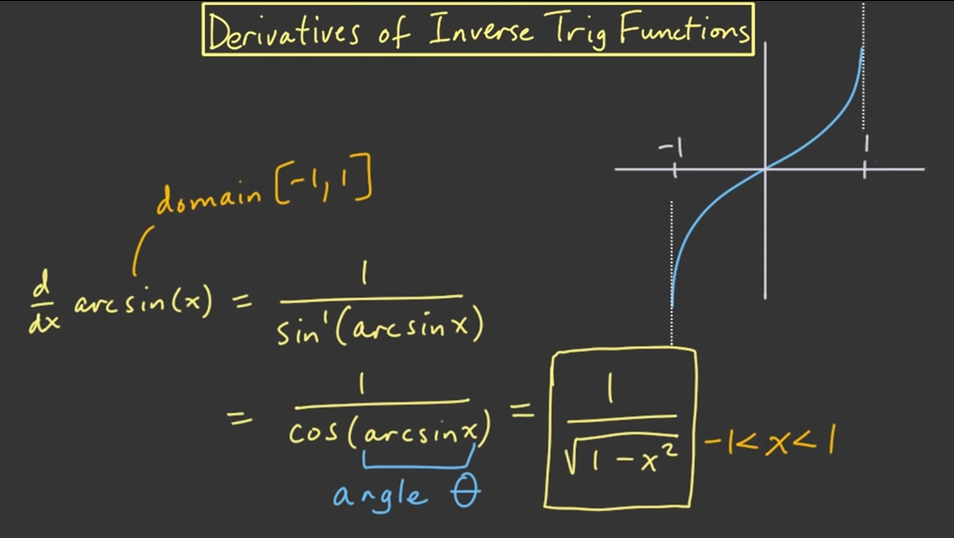 Derivatives of Inverse Trig Functions
-1 1
domain [-1, 1]
d/dx arcsin(x) = 1/sin'(arcsinx)
= 1/cos(arcsinx) = 1/√(1-x²) -1<x<1
angle θ